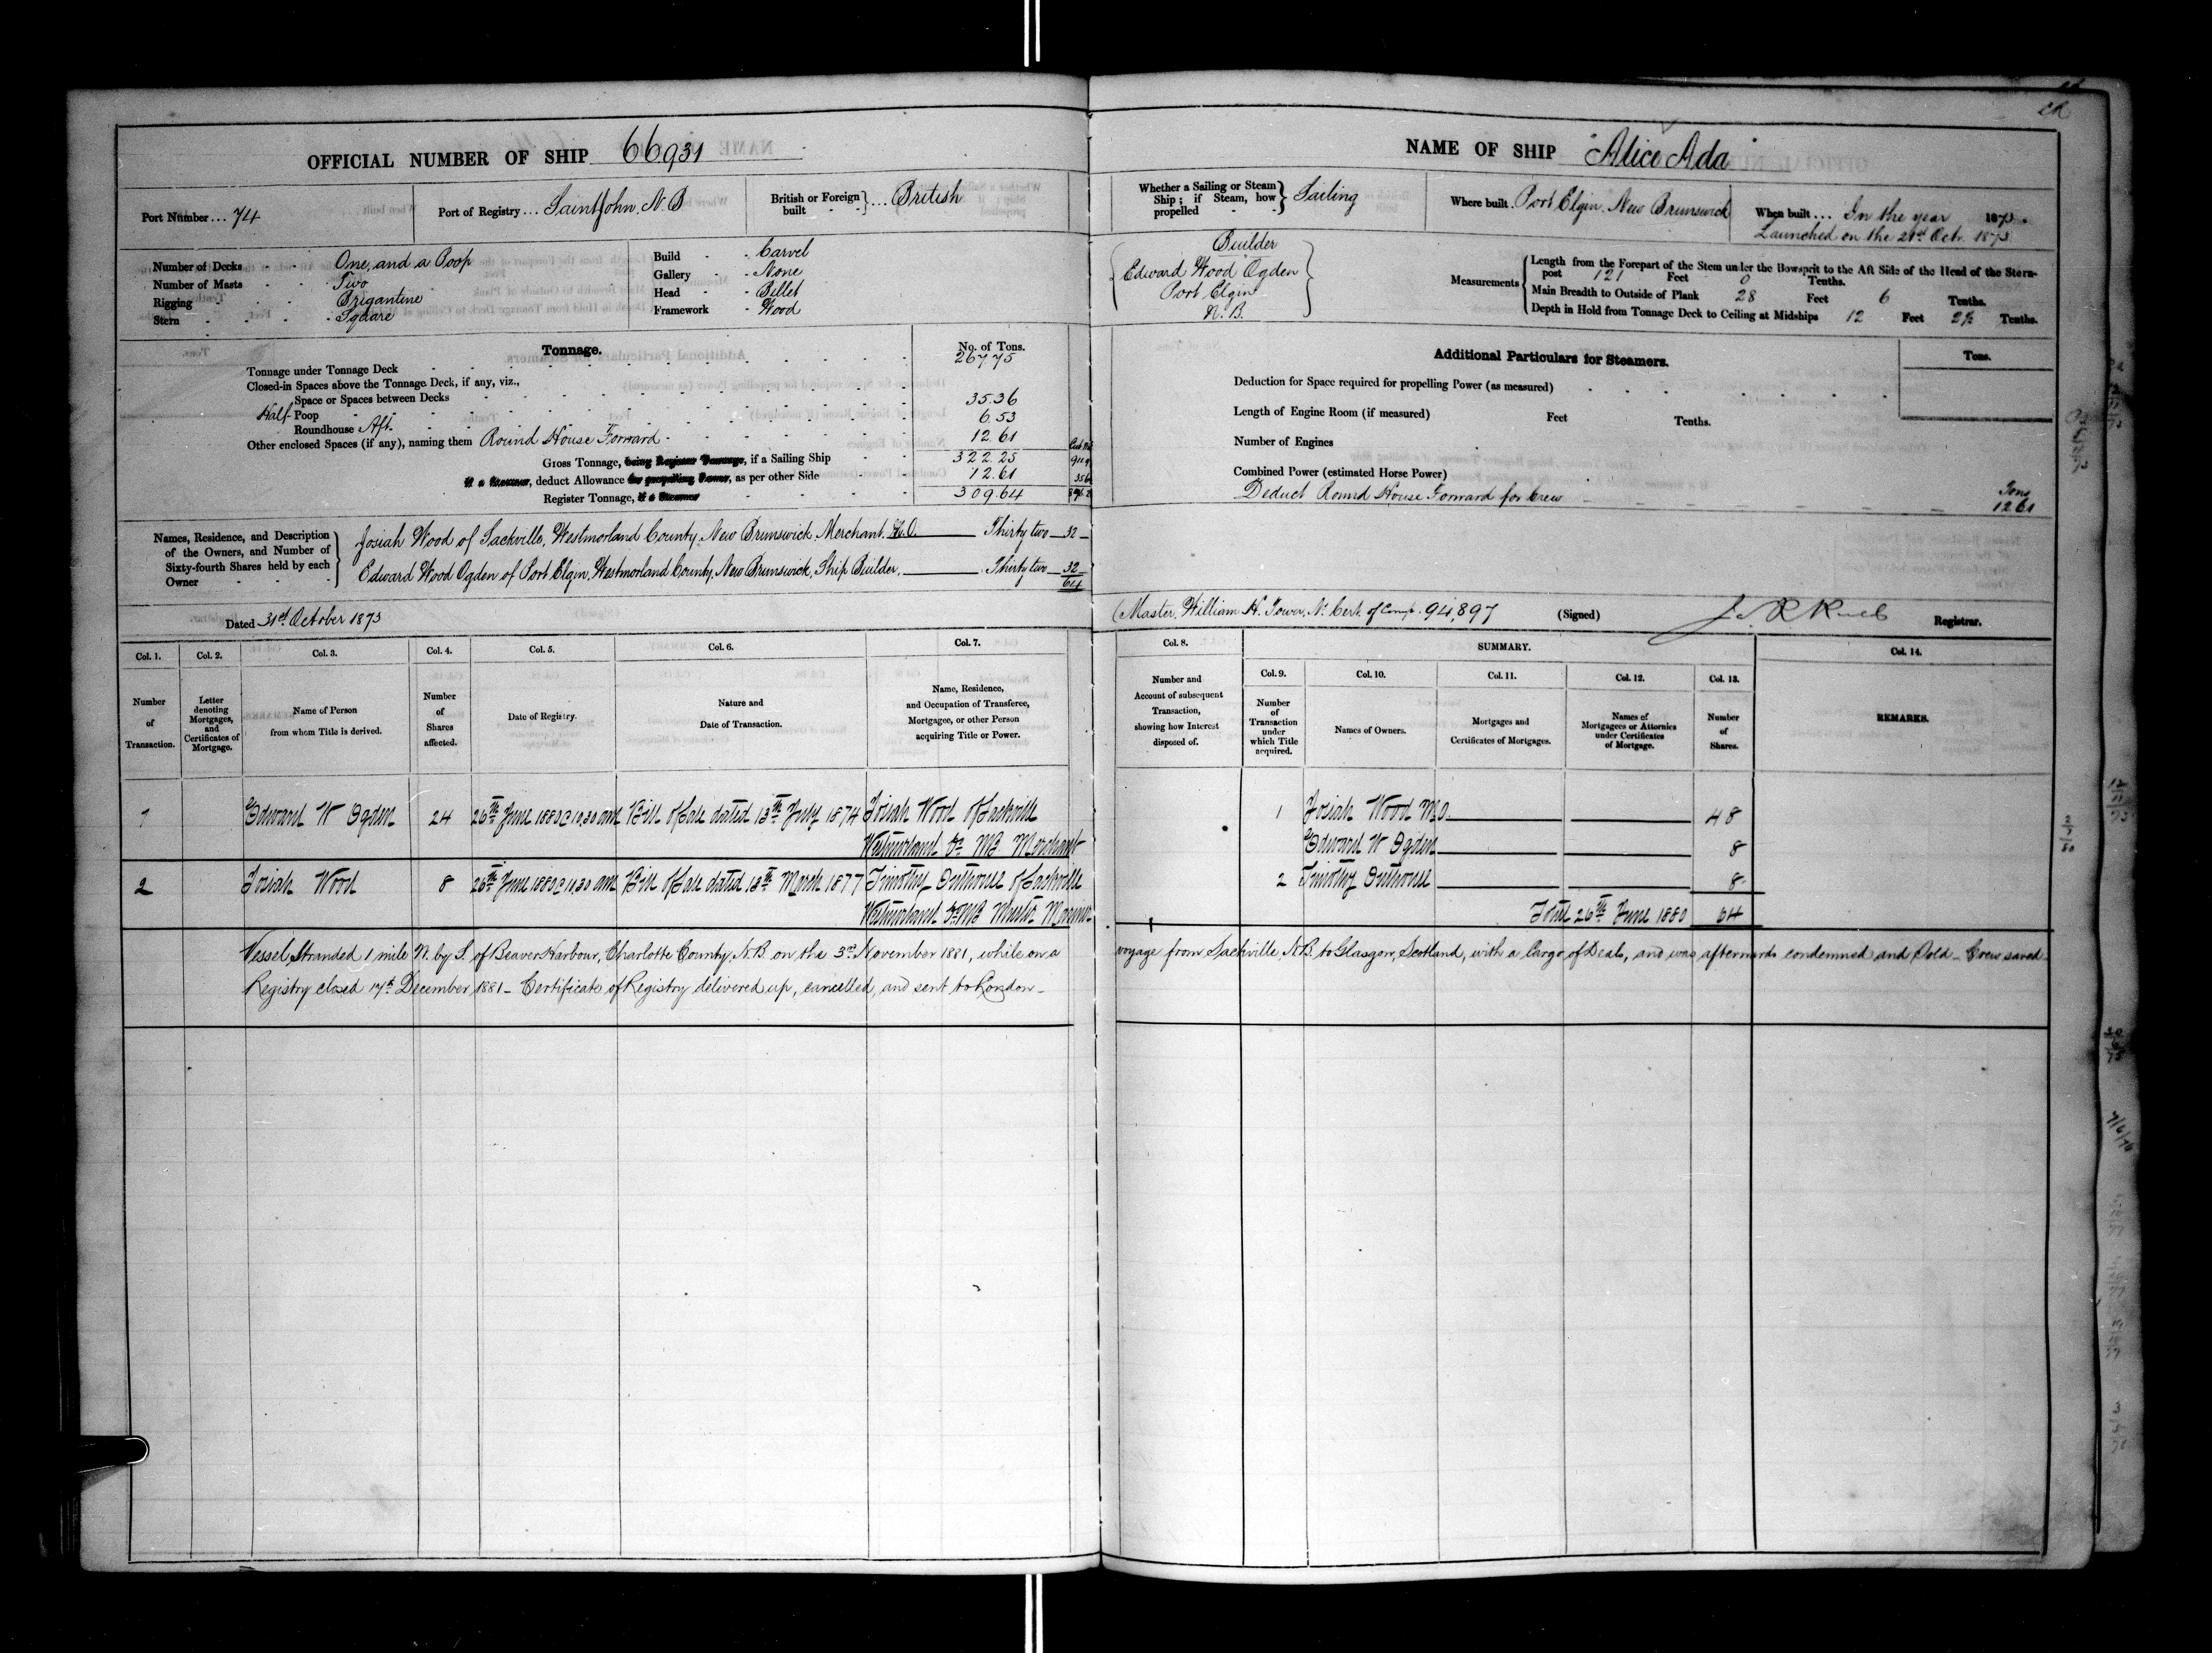 OFFICIAL NUMBER OF SHIP 66931
Port Number ... 74
Port of Registry ... Saint John, N.B
British or Foreign built } ... British
Number of Decks - - One, and a Poop
Number of Masts - - Two
Rigging - - Brigantine
Stern - - - - Square
Build - - Carvel
Gallery - - None
Head - - Billet
Framework - Wood
Tonnage.
No. of Tons.
Tonnage under Tonnage Deck 267.75
Closed-in Spaces above the Tonnage Deck, if any, viz.,
Space or Spaces between Decks
Half Poop 35.36
Roundhouse Aft. 6.53
Other enclosed Spaces (if any), naming them Round House Forward 12.61
Gross Tonnage, being Register Tonnage, if a Sailing Ship 322.25
if a Steamer, deduct Allowance for propelling Power, as per other Side 12.61
Register Tonnage, if a Steamer 309.64
Names, Residence, and Description of the Owners, and Number of Sixty-fourth Shares held by each Owner
Josiah Wood of Sackville, Westmorland County, New Brunswick, Merchant. M.O. Thirty two 32
Edward Wood Ogden of Port Elgin, Westmorland County, New Brunswick, Ship Builder, Thirty two 32
64
Dated 31st October 1873
NAME OF SHIP "Alice Ada"
Whether a Sailing or Steam Ship; if Steam, how propelled } Sailing
Where built Port Elgin, New Brunswick
When built ... In the year 1873.
Launched on the 21st Octr. 1873
Builder
Edward Wood Ogden
Port Elgin
N. B.
Measurements
Length from the Forepart of the Stem under the Bowsprit to the Aft Side of the Head of the Stern-
post 121 Feet 0 Tenths.
Main Breadth to Outside of Plank 28 Feet 6 Tenths.
Depth in Hold from Tonnage Deck to Ceiling at Midships 12 Feet 2½ Tenths.
Additional Particulars for Steamers.
Tons.
Deduction for Space required for propelling Power (as measured)
Length of Engine Room (if measured) Feet Tenths.
Number of Engines
Combined Power (estimated Horse Power)
Deduct Round House Forward for Crew Tons 12.61
Master, William H. Tower, No. Cert. of Comp. 94,897 (Signed) Registrar.
Col. 1. Col. 2. Col. 3. Col. 4. Col. 5. Col. 6. Col. 7.
Number of Transaction.
Letter denoting Mortgages, and Certificates of Mortgage.
Name of Person from whom Title is derived.
Number of Shares affected.
Date of Registry.
Nature and Date of Transaction.
Name, Residence, and Occupation of Transferee, Mortgagee, or other Person acquiring Title or Power.
Col. 8. SUMMARY. Col. 14.
Col. 9. Col. 10. Col. 11. Col. 12. Col. 13.
Number and Account of subsequent Transaction, showing how Interest disposed of.
Number of Transaction under which Title acquired.
Names of Owners.
Mortgages and Certificates of Mortgages.
Names of Mortgagees or Attornies under Certificates of Mortgage.
Number of Shares.
REMARKS.
1 Edward W Ogden 24 26th June 1880 @ 10,30 am Bill of Sale dated 13th July 1874 Josiah Wood of Sackville
Westmorland Co NB Merchant
2 Josiah Wood 8 26th June 1880 @ 11,30 am Bill of Sale dated 13th March 1877 Timothy Outhouse of Sackville
Westmorland Co NB Master Mariner
1 Josiah Wood M.O. 48
Edward W Ogden 8
2 Timothy Outhouse 8
Total 26th June 1880 64
Vessel Stranded 1 mile N. by S. of Beaver Harbour, Charlotte County, N.B. on the 3rd November 1881, while on a voyage from Sackville, N.B. to Glasgow, Scotland, with a Cargo of Deals, and was afterwards condemned and Sold - Crew saved -
Registry closed 17th December 1881 - Certificate of Registry delivered up, cancelled, and sent to London -